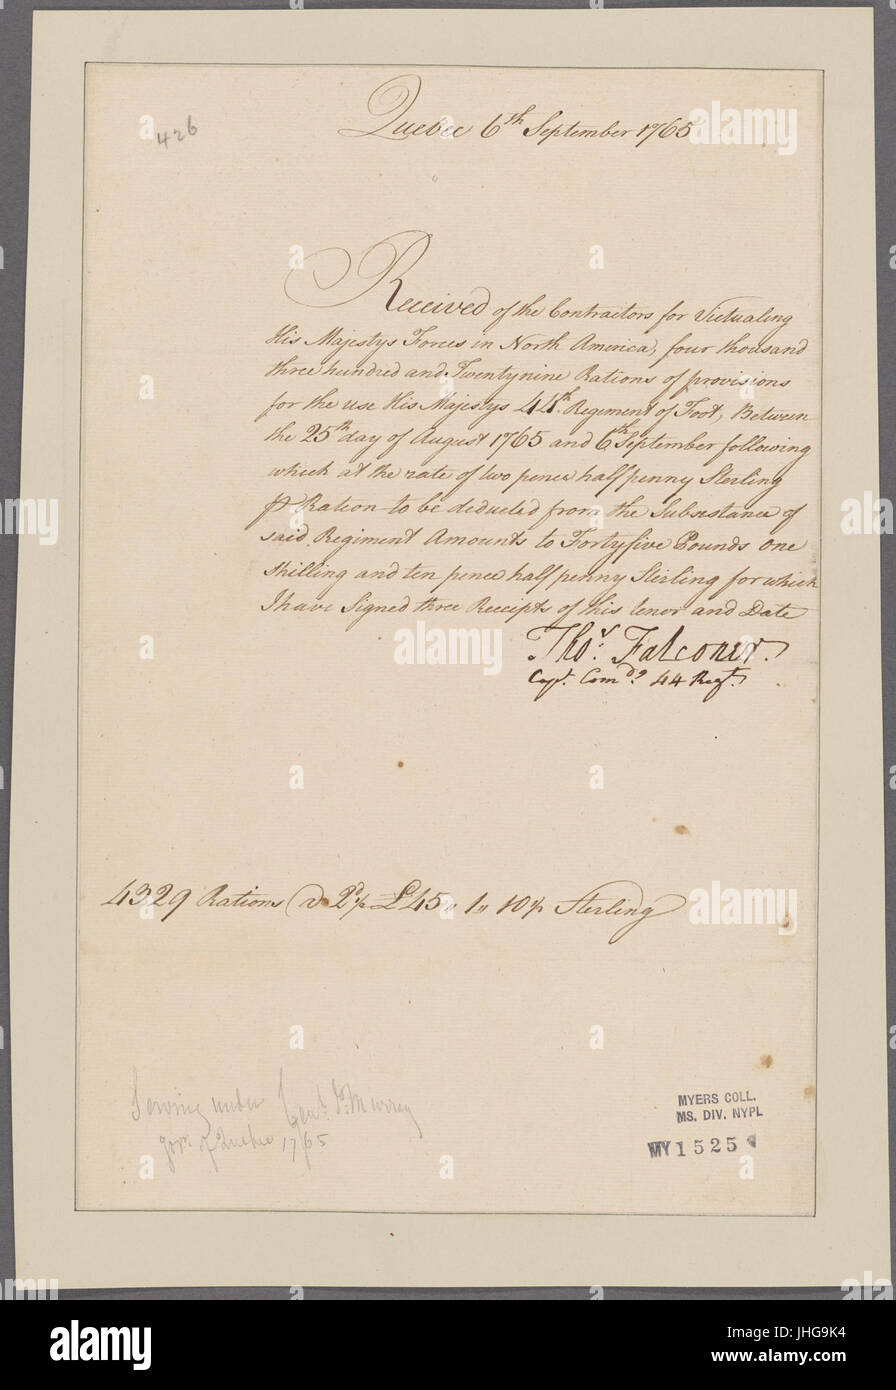 426
Quebec 6th September 1765
Received of the Contractors for Victualing
His Majestys Forces in North America, four thousand
three hundred and Twentynine Rations of provisions
for the use His Majestys 44th Regiment of Foot, Between
the 25th day of August 1765 and 6th September following
which at the rate of two pence half penny Sterling
⅌ Ration to be deducted from the Subsistance of
said Regiment Amounts to Fortyfive Pounds one
shilling and ten pence half penny Sterling for which
I have Signed three Receipts of this tenor and Date
Thos. Falconer.
Capt. Comdg 44 Regt.
4329 Rations @ 2½d £45 „ 1 „ 10½ Sterling
Serving under Murray
govr. of Quebec 1765
MYERS COLL.
MS. DIV. NYPL
MY 1525
alamy
Image ID: JHG9K4
www.alamy.com